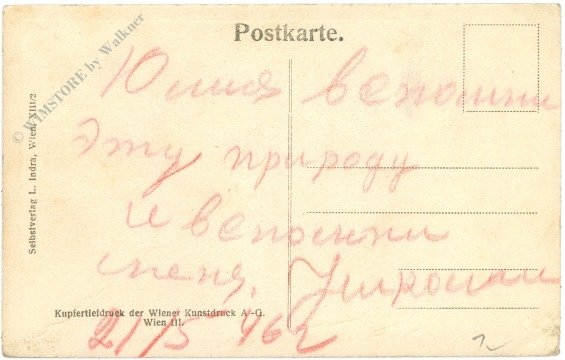 Postkarte.
Юлия вспомни
Эту природу
и вспомни
меня.
21/5 46 г
Selbstverlag L. Indra, Wien, XIII/2
Kupfertiefdruck der Wiener Kunstdruck A.-G.
Wien III.
© WIMSTORE by Walkner